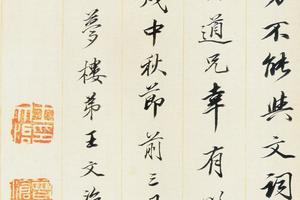 不能與文詞
道兄幸有
中秋節前三
夢樓弟王文治